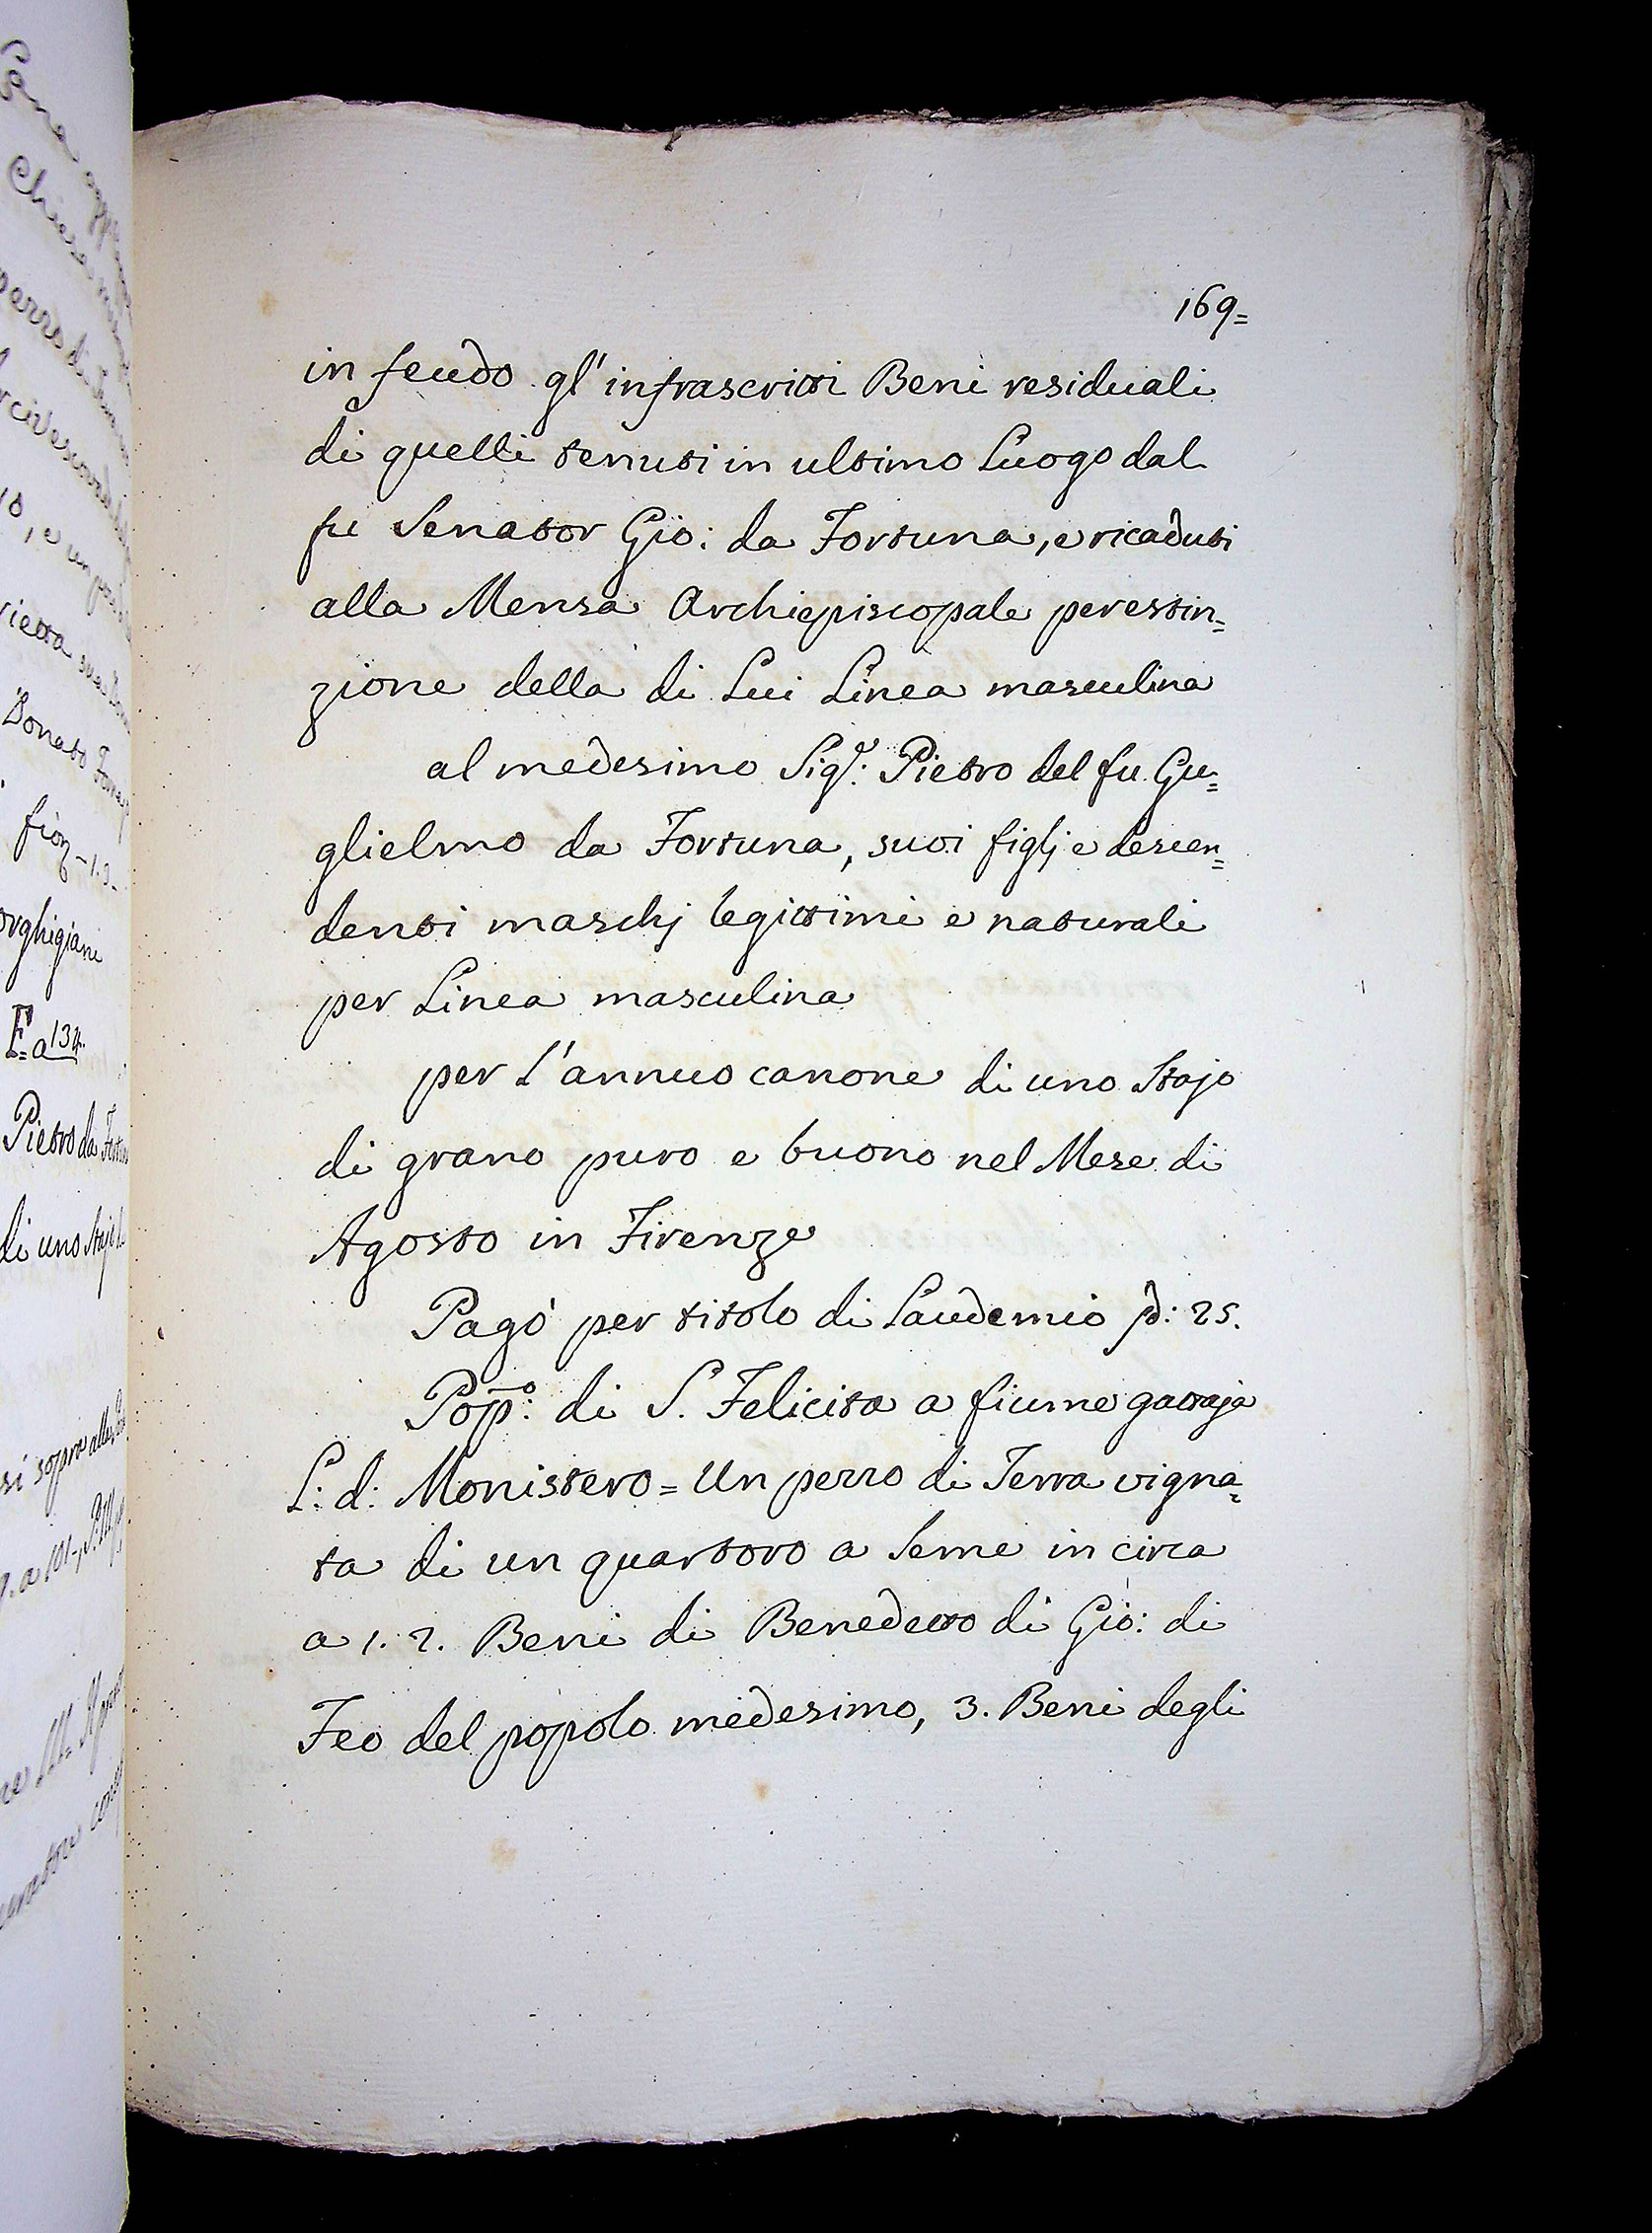 169=
in feudo gl'infrascritti Beni residuali
di quelli tenuti in ultimo Luogo dal
fu Senator Gio: da Fortuna, e ricaduti
alla Mensa Archiepiscopale per estin=
zione della di Lui Linea masculina
al medesimo Sig.r: Pietro del fu Gu=
glielmo da Fortuna, suoi figlj e descen=
denti maschj legittimi e naturali
per Linea masculina
per l'annuo canone di uno Stajo
di grano puro e buono nel Mese di
Agosto in Firenze
Pagò per titolo di Laudemio : 25.
Pop.o: di S. Felicita a fiume gattaja
L: d: Monistero = Un pezzo di Terra vigna=
ta di un quartoro a Seme in circa
a 1. 2. Beni di Benedetto di Gio: di
Feo del popolo medesimo, 3. Beni degli
Donato
fior
orghigiani
F. a 134.
Pietro da
di uno Stajo
si sopra alle
a 101